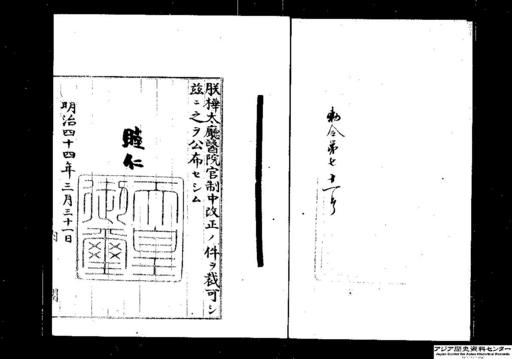 勅令第七十一号
朕樺太廳醫院官制中改正ノ件ヲ裁可シ
茲ニ之ヲ公布セシム
睦仁
天皇
御璽
明治四十四年三月三十一日
内閣
アジア歴史資料センター
Japan Center for Asian Historical Records